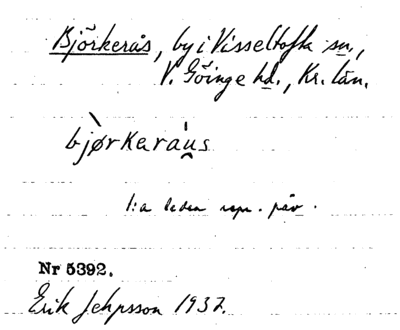 Björkerås, by i Visseltofta sn.,
V. Göinge hd., Kr. län.
bjørkeraus
1:a leden repr. päv.
Nr 5392.
Erik Jeppsson 1937.